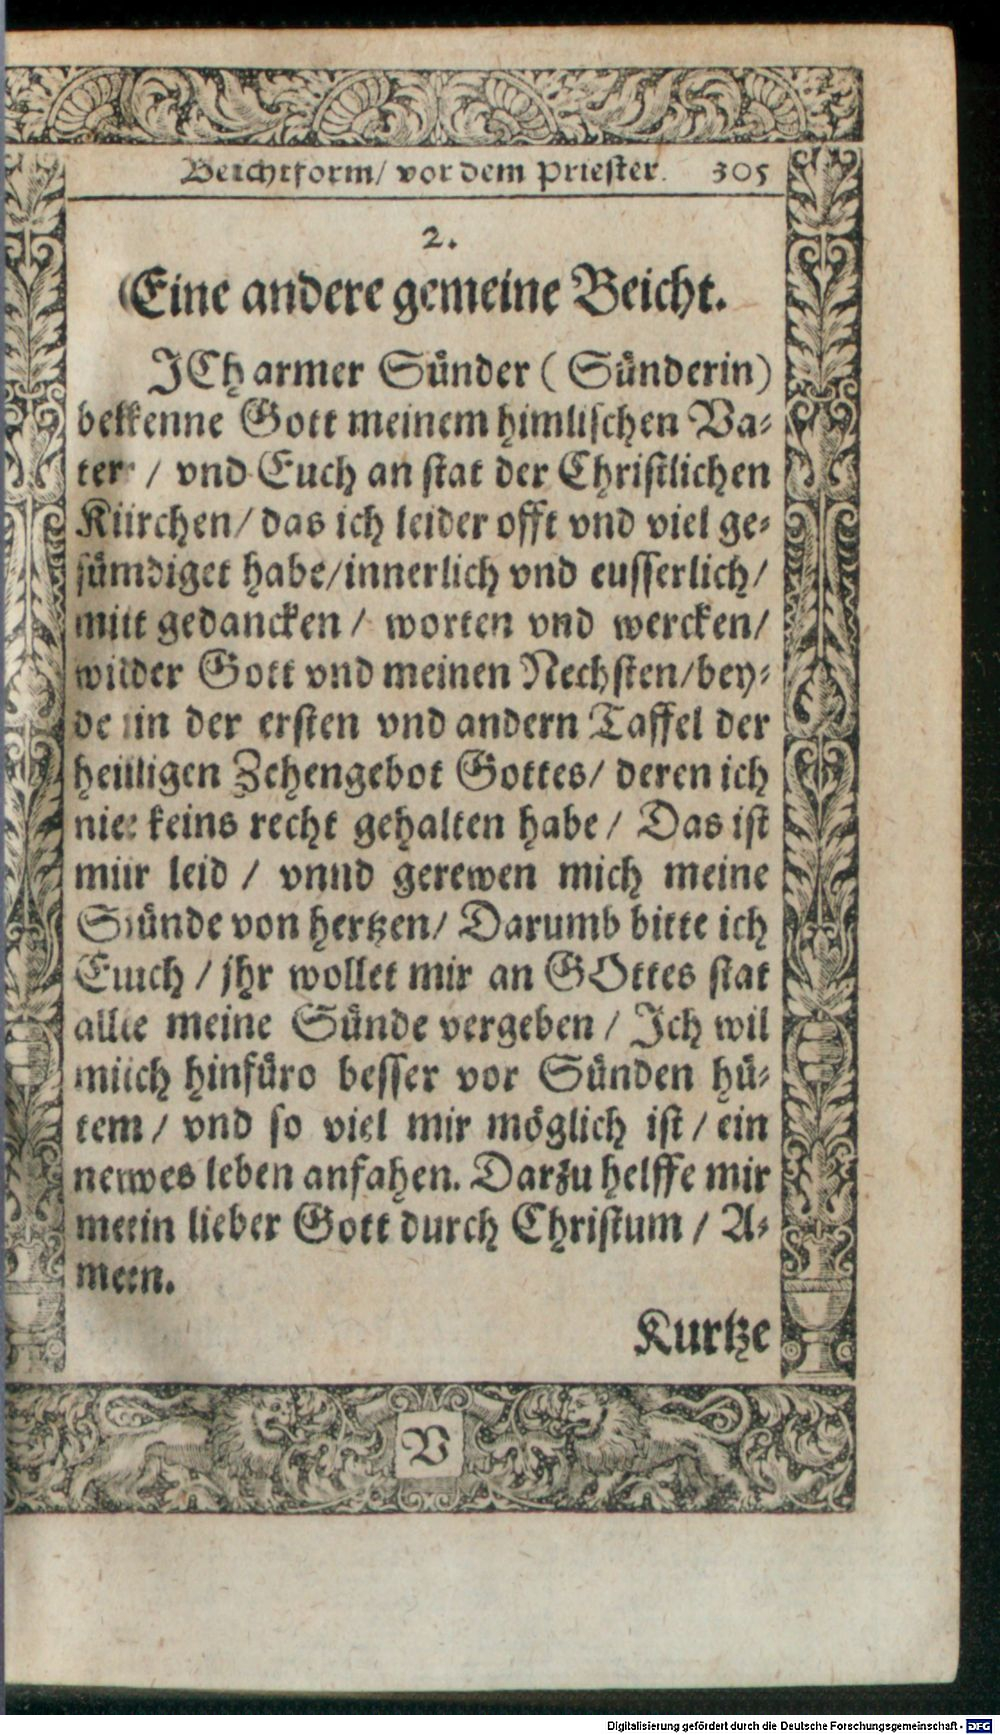 Beichtform/ vor dem Priester. 305
2.
Eine andere gemeine Beicht.
JCh armer Sünder ( Sünderin)
bekenne Gott meinem himlischen Va-
ter / vnd Euch an stat der Christlichen
Kirchen/ das ich leider offt vnd viel ge-
sündiget habe/innerlich vnd eusserlich/
mit gedancken / worten vnd wercken/
wider Gott vnd meinen Nechsten/bey-
de in der ersten vnd andern Taffel der
heiligen Zehengebot Gottes/ deren ich
nie keins recht gehalten habe / Das ist
mir leid / vnnd gerewen mich meine
Sünde von hertzen/ Darumb bitte ich
Euch / jhr wollet mir an GOttes stat
alle meine Sünde vergeben / Jch wil
mich hinfüro besser vor Sünden hü-
ten / vnd so viel mir möglich ist / ein
newes leben anfahen. Darzu helffe mir
mein lieber Gott durch Christum / A-
men.
Kurtze
V
Digitalisierung gefördert durch die Deutsche Forschungsgemeinschaft - DFG